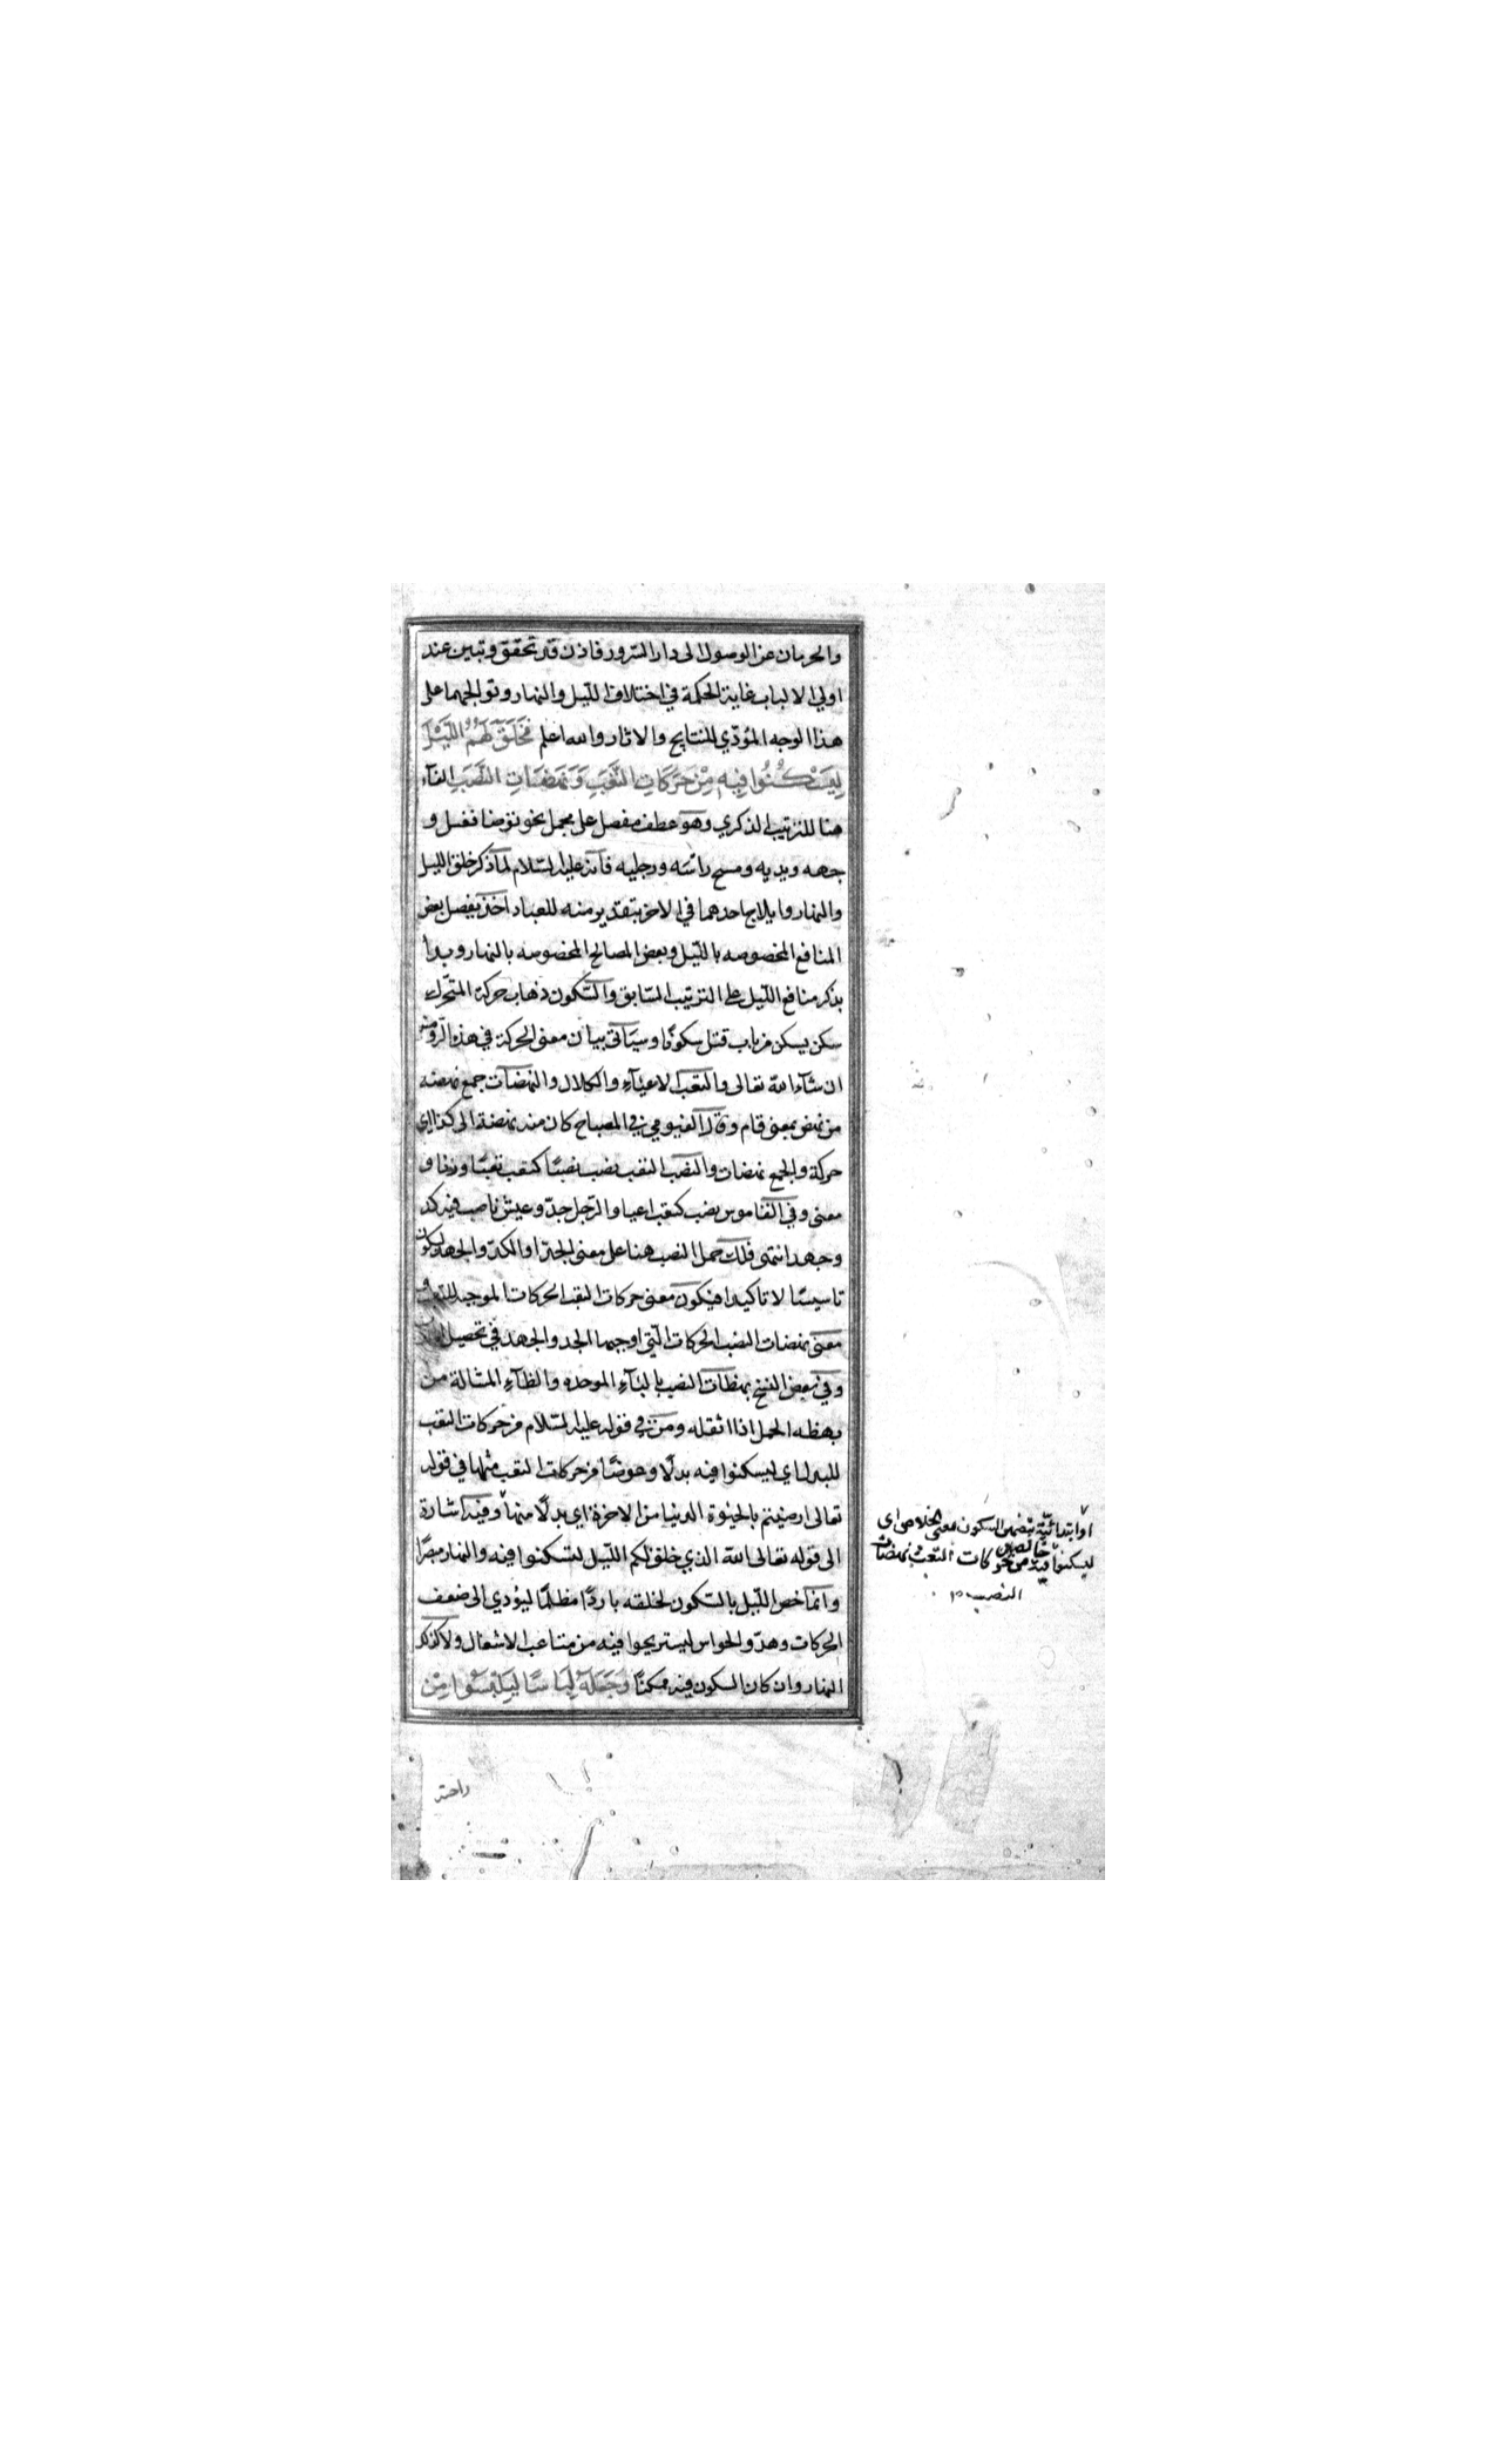 والحرمان عن الوصول الى دار السرور فاذن قد تحقق وتبين عند
اولي الالباب غاية الحكمة في اختلاف اللّيل والنهار وتوالجهما على
هذا الوجه المؤدّي للنتايج والاثار والله اعلم فَخَلَقَ لَهُمُ اللَّيْلَ
لِيَسْكُنُوا فِيهِ مِنْ حَرَكَاتِ التَّعَبِ وَنَهَضَاتِ النَّصَبِ الفآء
هنا للترتيب الذكري وهو عطف مفصل على مجمل نحو توضا فغسل و
جهه ويديه ومسح رأسه ورجليه فآنه عليه السّلام لمّا ذكر خلق الليل
والنهار وايلاج احدهما في الاخر بتقدير منه للعباد اخذ يفصل بعض
المنافع المخصوصه باللّيل وبعض المصالح المخصوصه بالنهار وبدأ
بذكر منافع اللّيل على الترتيب السّابق والسّكون ذهاب حركة المتحّرك
سكن يسكن من باب قتل سكونًا وسيَأتي بيان معنى الحركة في هذه الرّوضه
ان شآء الله تعالى والتعب الاعيآء والكلال والنهضات جمع نهضه
من نهض بمعنى قام وقال الفيومي في المصباح كان منه نهضة الى كذا اي
حركة والجمع نهضات والنصب التعب نصب نصبًا كتعب تعبًا وزنا و
معنى وفي القاموس نصب كتعب اعيا والرّجل جدّ وعيش ناصب فيه كد
وجهد انتهى فلك حمل النصب هنا على معنى الجدّ او الكدّ والجهد ليكون
تاسيسًا لا تاكيدا فيكون معنى حركات التعب الحركات الموجبه للتعب و
معنى نهضات النصب الحركات الّتي اوجبها الجد والجهد في تحصيل
وفي بعض النسخ بهظات النصب بالبآء الموحده والظآء المشالة من
بهظه الحمل اذا اثقله ومن في قوله عليه السّلام من حركات التعب
للبدل اي ليسكنوا فيه بدلًا وعوضًا من حركات التعب مثلها في قوله
تعالى ارضيتم بالحيوة الدنيا من الاخرة اي بدلًا منها وفيه اشارة
الى قوله تعالى الله الذي خلق لكم اللّيل لتسكنوا فيه والنهار مبصرًا
وانّما خص اللّيل بالسّكون لخلقه باردًا مظلمًا ليؤدي الى ضعف
الحركات وهدّو الحواس ليستريحوا فيه من متاعب الاشغال ولا كذلك
النهار وان كان السكون فيه ممكنًا وَجَعَلَهُ لِبَاسًا لِيَلْبَسُوا مِنْ
او ابتدائيّة بتضمين السكون معنى الخلاص اى
ليسكنوا فيه خالصين من حركات التعب ونهضات
النصب
راحته